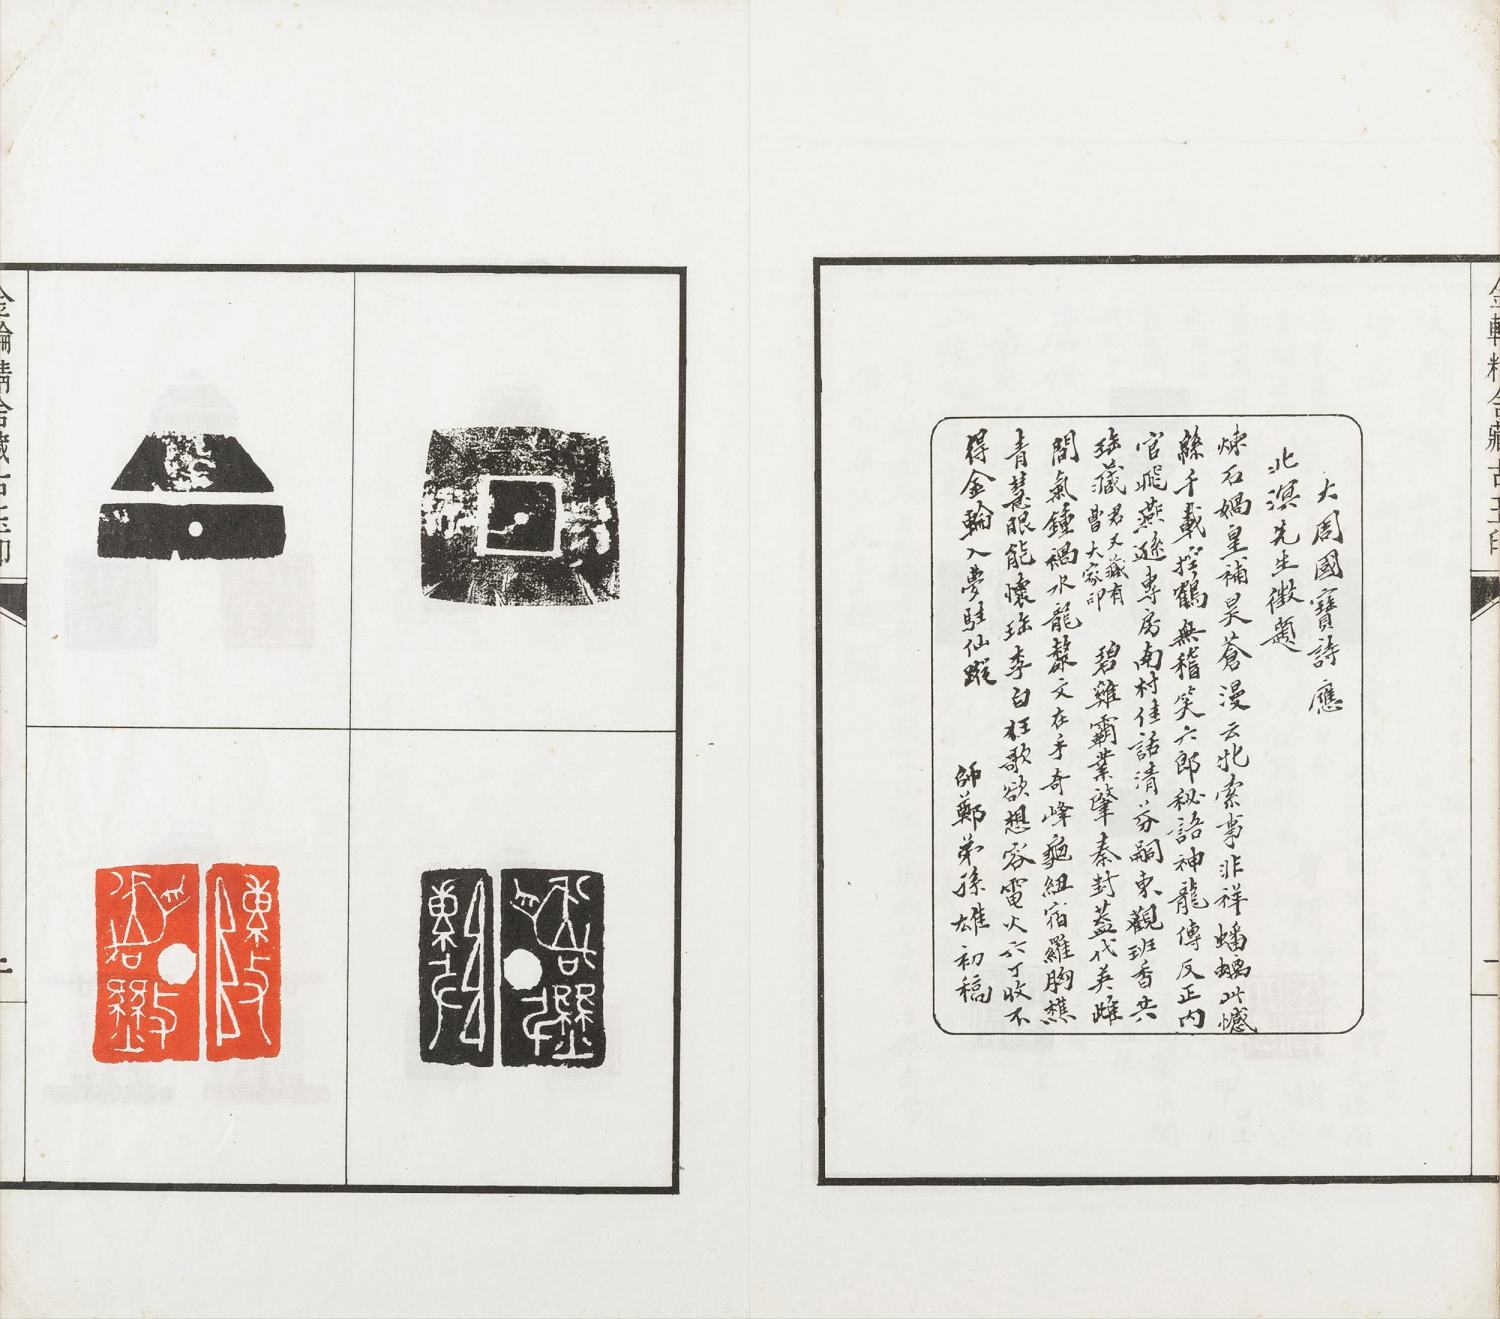 金輪精舍藏古玉印
大周國寶詩應
北溟先生徵題
煉石媧皇補昊蒼漫云牝索事非祥蟠螭此憾
緜千載控鶴無稽笑六郎秘語神龍傳反正內
官飛燕遜專房南村佳話清芬嗣東觀班香共
珍藏君又藏有
曹大家印碧雞霸業肇秦封蓋代英雌
間氣鍾禍水龍漦文在手奇峰龜紐宿羅胸樵
青慧眼能懷珍李白狂歌欲想容電火六丁收不
得金輪入夢駐仙蹤
師鄭弟孫雄初稿
金輪精舍藏古玉印